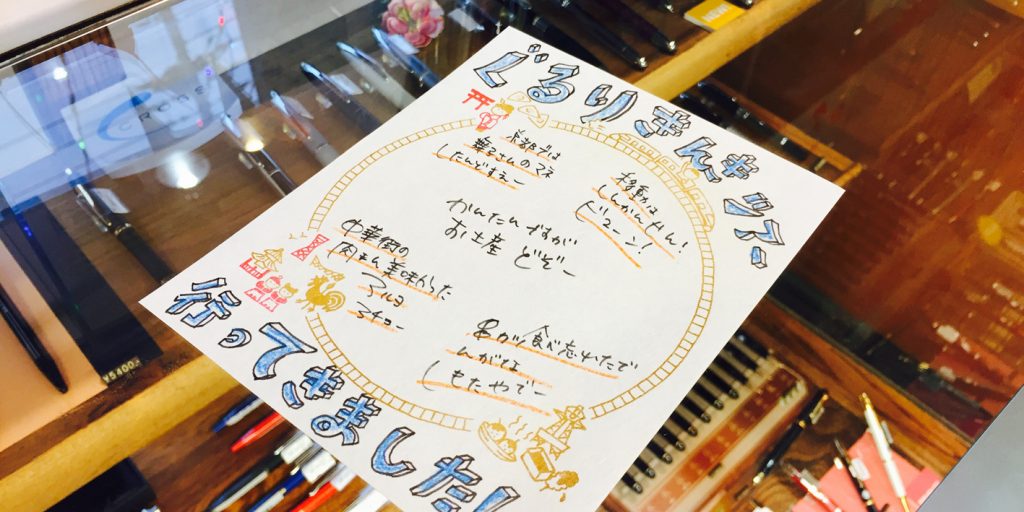 ぐるりきんキツアー
京都では
舞子さんのマネ
したんどすえー
移動は
しんかんせん!
ビューン!
かんたんですが
お土産 どぞー
中華街の
肉まん美味かった
アルヨ
串カツ 食べ忘れたで
んがな
しもたやでー
行ってきました!
CROSS
¥5400
NEW!